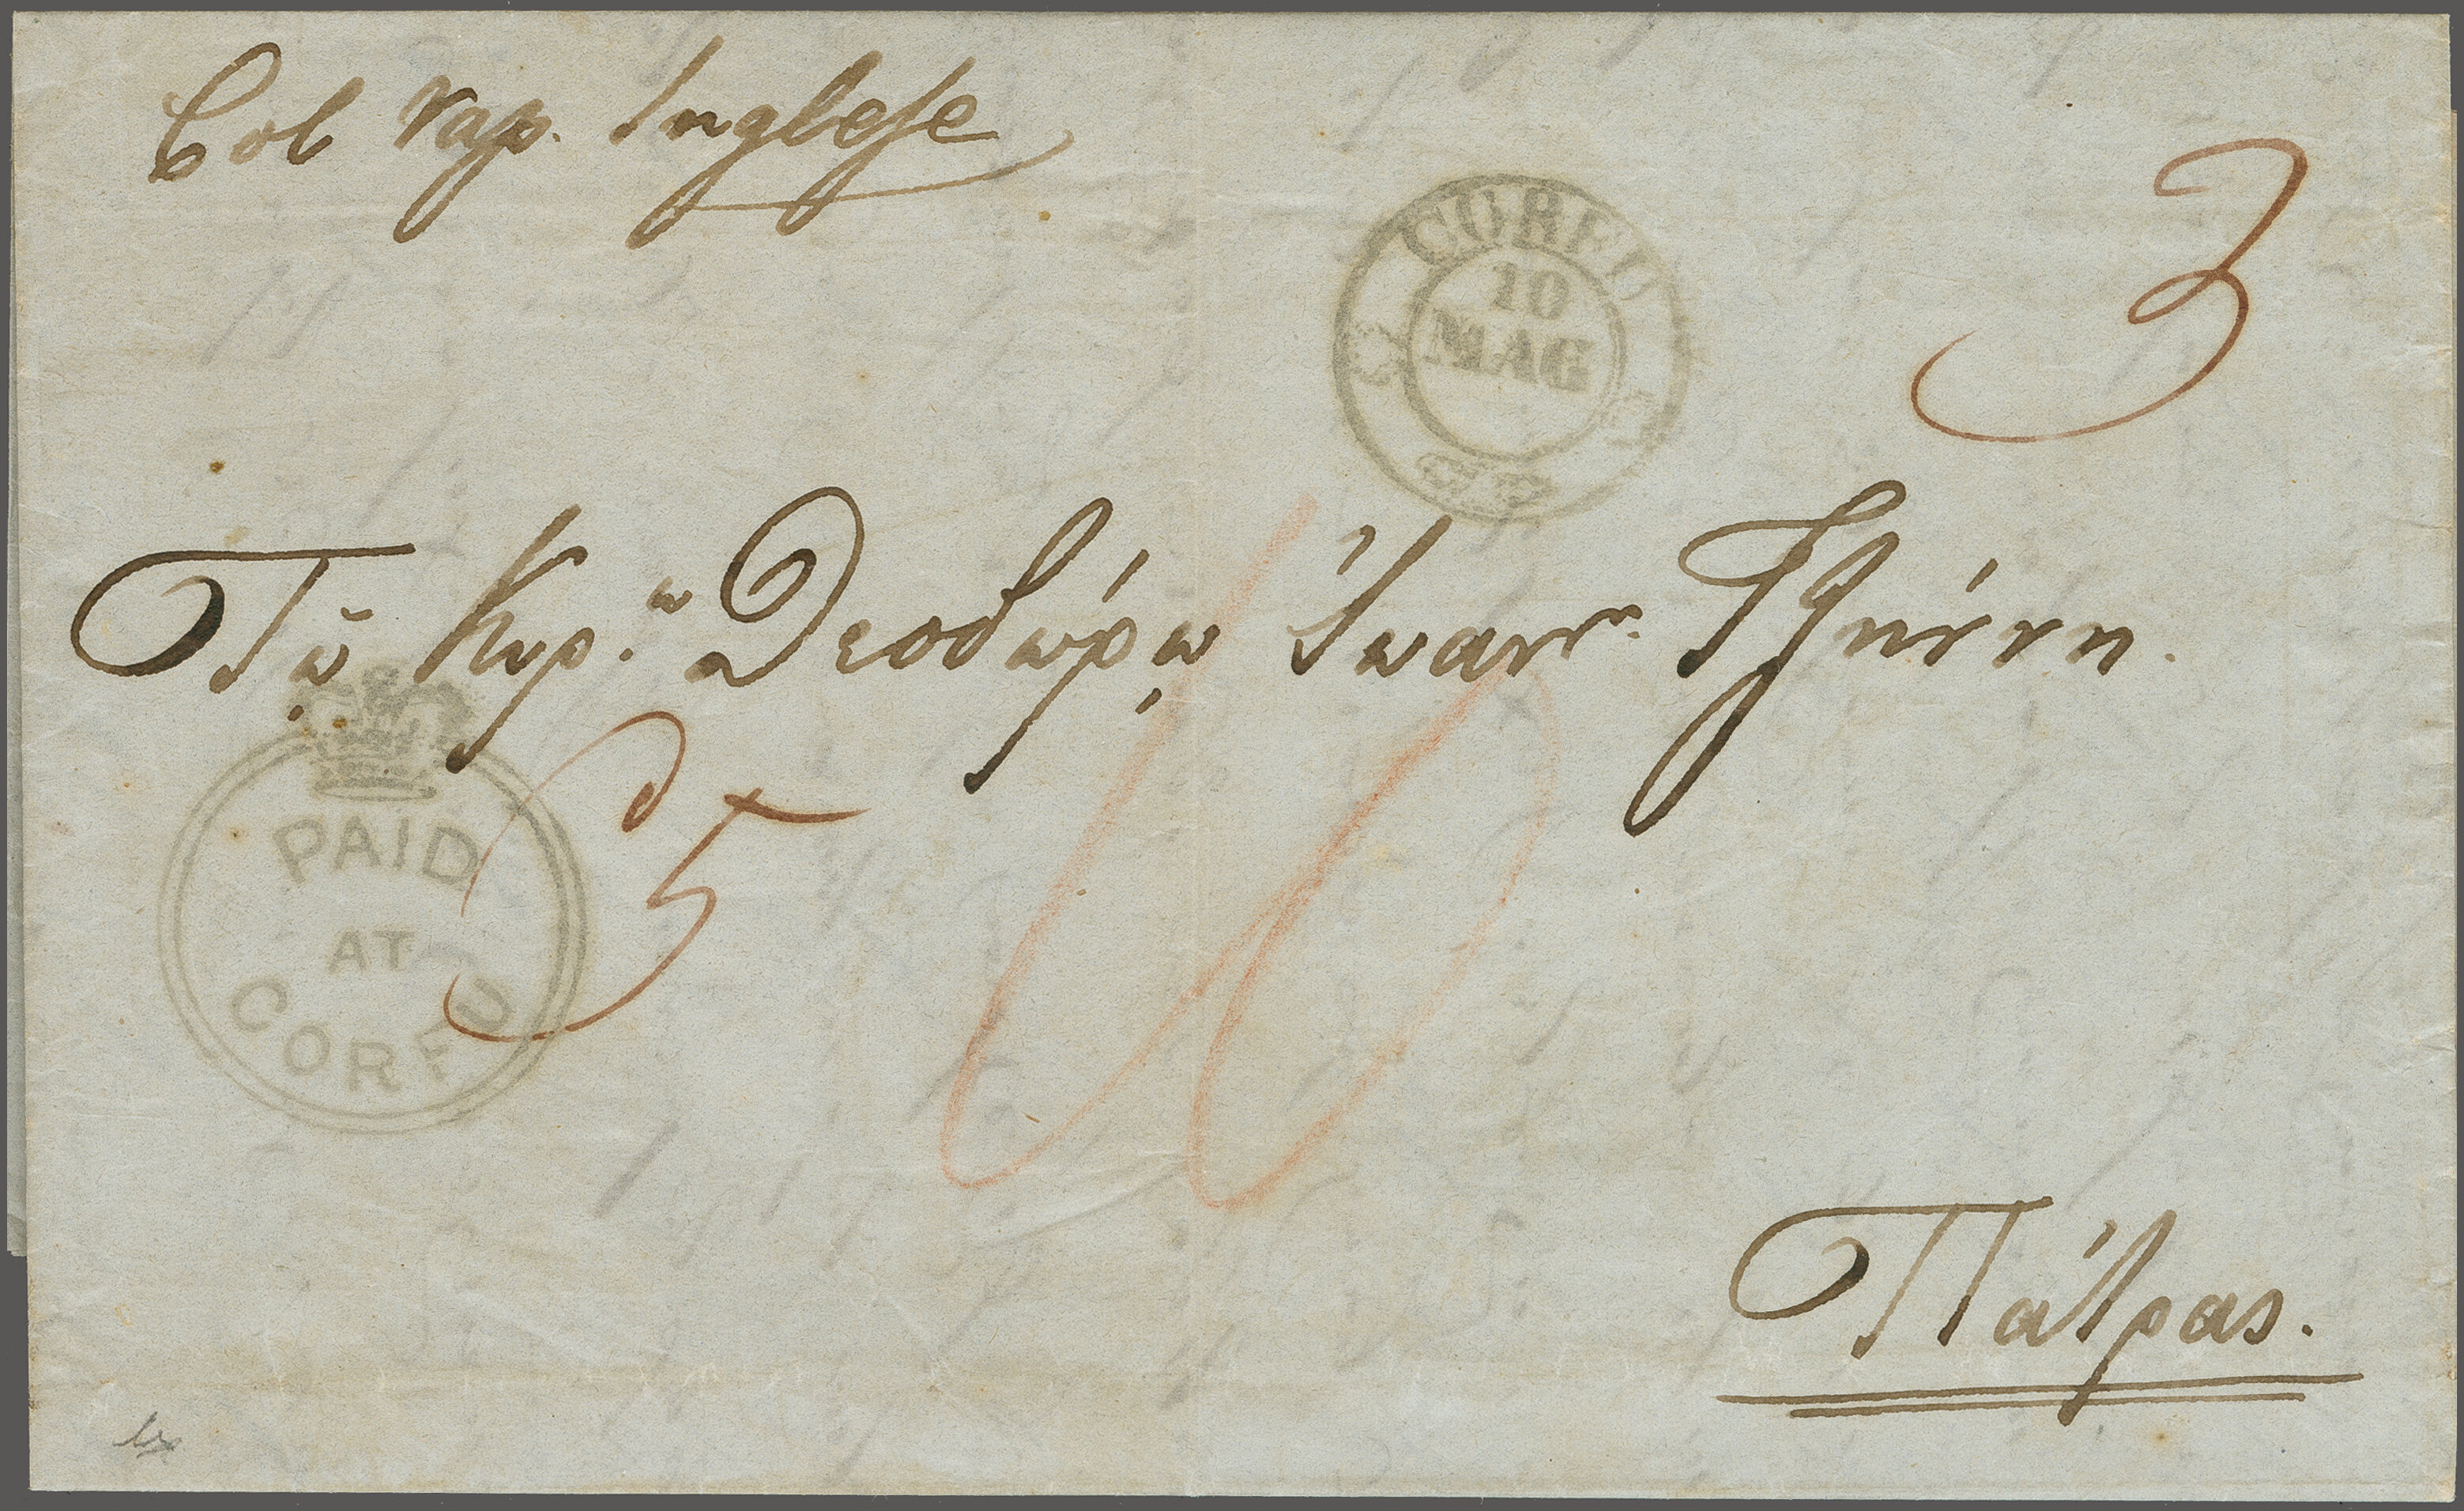 Col Vap. Inglese
CORFU
10
MAG
3
Τῷ Κυρ.ῳ Θεοδώρῳ Ἰωανν.
PAID
AT
CORFU
5
10
Πάτρας.